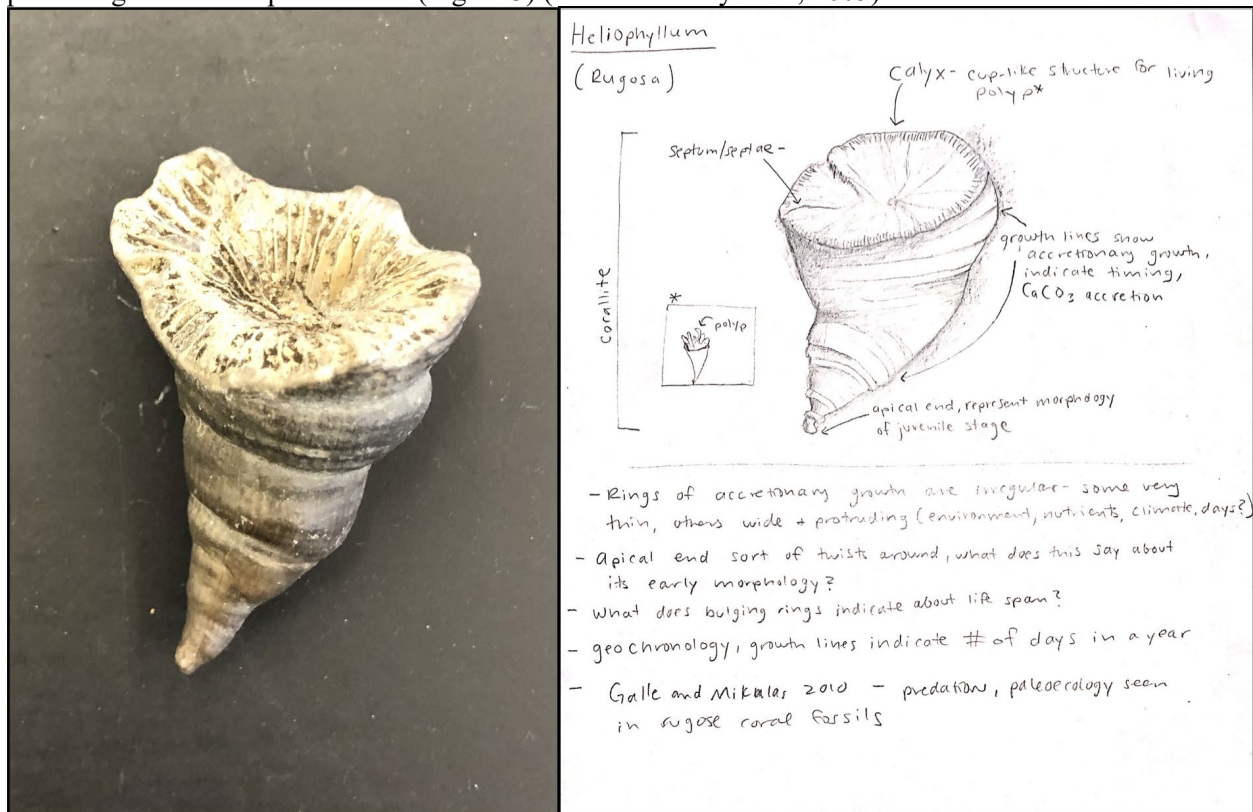 Heliophyllum
(Rugosa)
Calyx- cup-like structure for living
polyp*
septum/septae-
growth lines show
accretionary growth,
indicate timing,
CaCO₃ accretion
corallite
*
polyp
apical end, represent morphology
of juvenile stage
- Rings of accretionary growth are irregular- some very
thin, others wide + protruding (environment, nutrients, climate, days?)
- Apical end sort of twists around, what does this say about
its early morphology?
- What does bulging rings indicate about life span?
- geochronology, growth lines indicate # of days in a year
- Galle and Mikulas 2010 - predation, paleoecology seen
in rugose coral fossils